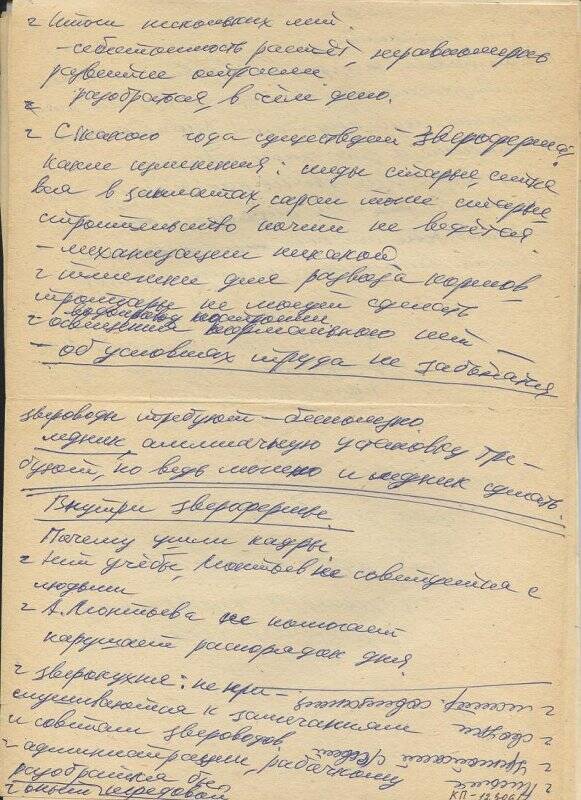 Итоги нескольких лет.
- себестоимость растёт, неравномерное
развитие отрасли
разобраться, в чём дело.
С какого года существует звероферма?
какие изменения: меды старые, сетка
вся в заплатах, сараи тоже старые
строительство почти не ведётся.
- механизации никакой
тележки для развоза кормов
тротуары не могут сделать
водопровод построили
освещения нормального нет —
- об условиях труда не заботятся
звероводы требуют - бесполезно
ледник, аммиачную установку тре-
буют, но ведь можно и ледник сделать.
Внутри зверофермы.
Почему ушли кадры
Нет учёбы, Леонтьев не советуется с
людьми
А. Леонтьева не помогает
нарушает распорядок дня
зверокухня: не при-
слушиваются к замечаниям
и советам звероводов
администрации, рабочкому
разобраться бы
опыт передовой
КП-